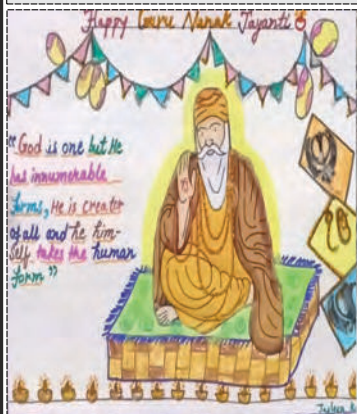 Happy Guru Nanak Jayanti
"God is one but He
has innumerable
forms, He is creator
of all and he him-
self takes the human
form"